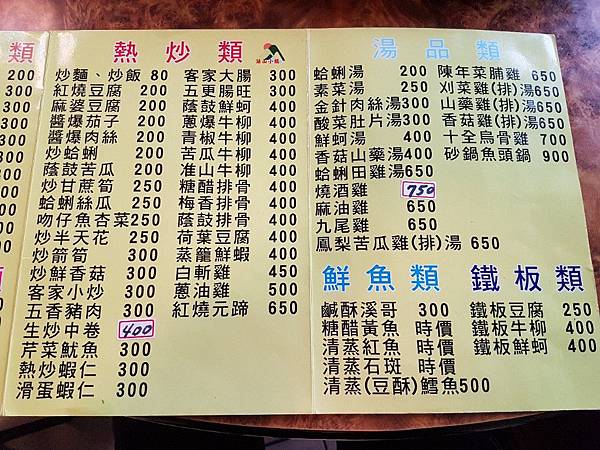 類
200
200
200
200
200
300
300
300
300
300
300
類
熱炒類
炒麵、炒飯 80
紅燒豆腐 200
麻婆豆腐 200
醬爆茄子 200
醬爆肉絲 200
炒蛤蜊 200
蔭鼓苦瓜 200
炒甘蔗筍 250
蛤蜊絲瓜 250
吻仔魚杏菜250
炒半天花 250
炒箭筍 300
炒鮮香菇 300
客家小炒 300
五香豬肉 300
生炒中卷 400
芹菜魷魚 300
熱炒蝦仁 300
滑蛋蝦仁 300
客家大腸 300
五更腸旺 300
蔭鼓鮮蚵 400
蔥爆牛柳 400
青椒牛柳 400
苦瓜牛柳 400
准山牛柳 400
糖醋排骨 400
梅香排骨 400
蔭鼓排骨 400
荷葉豆腐 400
蒸籠鮮蝦 400
白斬雞 450
蔥油雞 500
紅燒元蹄 650
湯品類
蛤蜊湯 200
素菜湯 250
金針肉絲湯300
酸菜肚片湯300
鮮蚵湯 400
香菇山藥湯400
蛤蜊田雞湯650
燒酒雞 750
麻油雞 650
九尾雞 650
鳳梨苦瓜雞(排)湯 650
陳年菜脯雞 650
刈菜雞(排)湯650
山藥雞(排)湯650
香菇雞(排)湯650
十全烏骨雞 700
砂鍋魚頭鍋 900
鮮魚類
鹹酥溪哥 300
糖醋黃魚 時價
清蒸紅魚 時價
清蒸石斑 時價
清蒸(豆酥)鱈魚500
鐵板類
鐵板豆腐 250
鐵板牛柳 400
鐵板鮮蚵 400